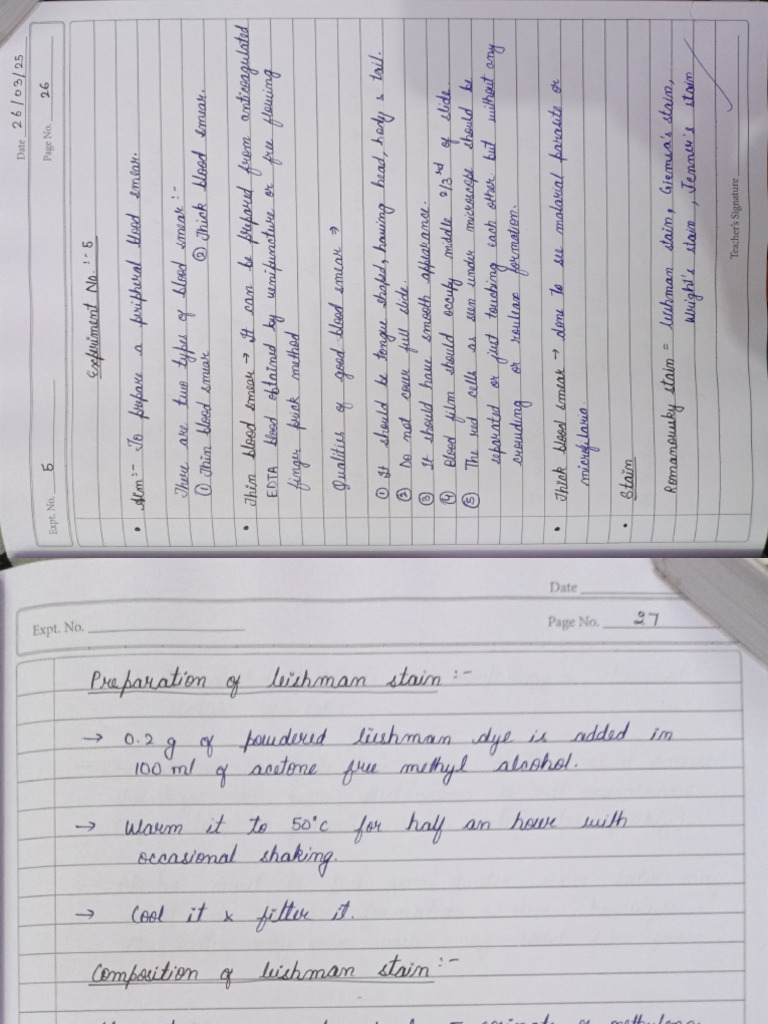 Date 26/03/25
Expt. No. 5 Page No. 26
Experiment No :- 5
• Aim :- To prepare a peripheral blood smear.
There are two types of blood smear :-
① Thin blood smear ② Thick blood smear.
• Thin blood smear → It can be prepared from anticoagulated
EDTA blood obtained by venipuncture or free flowing
finger prick method
Qualities of good blood smear →
① It should be tongue shaped, having head, body & tail.
② Do not cover full slide.
③ It should have smooth appearance.
④ Blood film should occupy middle 2/3rd of slide.
⑤ The red cells as seen under microscope should be
separated or just touching each other but without any
crowding or roulean formation.
• Thick blood smear → done to see malarial parasite or
microfilaria.
• Stain
Romanowsky stain = leishman stain, Giemsa's stain,
Wright's stain, Jenner's stain
Teacher's Signature
Date
Expt. No. Page No. 27
Preparation of leishman stain :-
→ 0.2 g of powdered leishman dye is added in
100 ml of acetone free methyl alcohol.
→ Warm it to 50°c for half an hour with
occasional shaking.
→ Cool it & filter it.
Composition of leishman stain :-